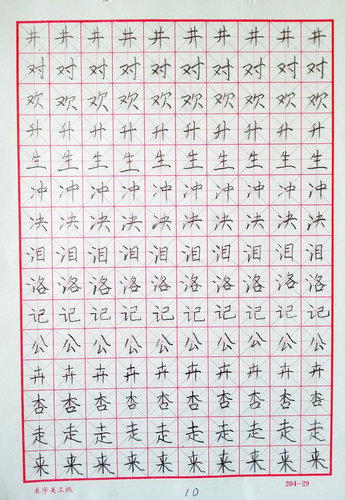 井井井井井井井井井井
对对对对对对对对对对
欢欢欢欢欢欢欢欢欢欢
升升升升升升升升升升
生生生生生生生生生生
冲冲冲冲冲冲冲冲冲冲
决决决决决决决决决决
泪泪泪泪泪泪泪泪泪泪
洛洛洛洛洛洛洛洛洛洛
记记记记记记记记记记
公公公公公公公公公公
卉卉卉卉卉卉卉卉卉卉
杏杏杏杏杏杏杏杏杏杏
走走走走走走走走走走
来来来来来来来来来来
米字美工纸 10 204-29